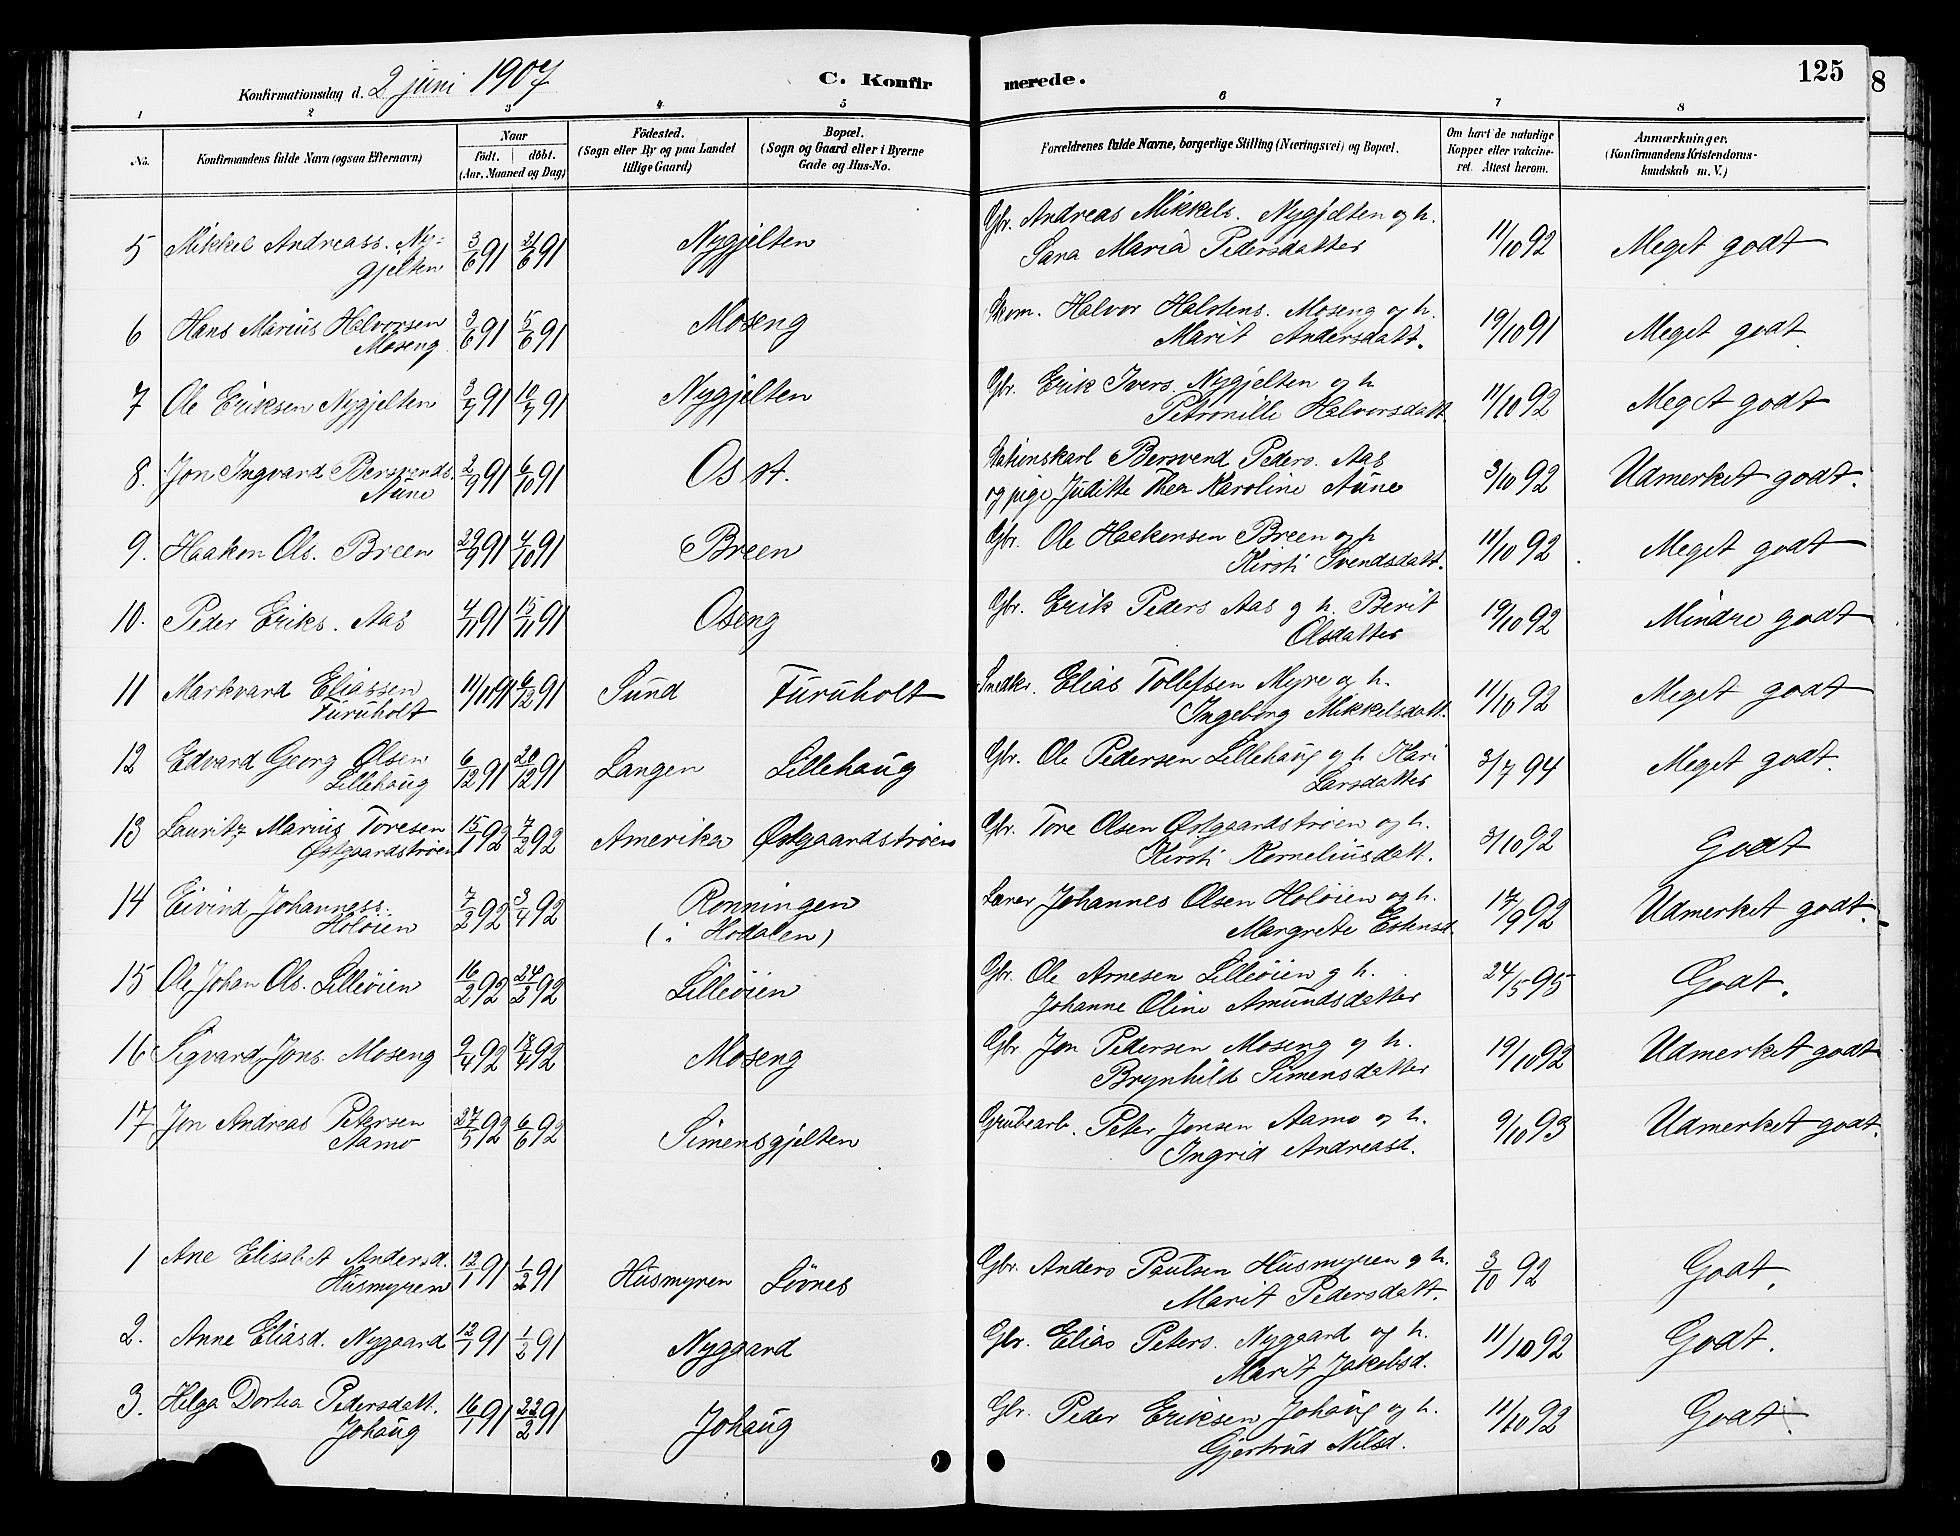 Konfirmationsdag d. 2 juni 1907 C. Konfir merede. 125
8
1 2 3 4 5 6 7 8
No. Konfirmandens fulde Navn (ogsaa Efternavn) Naar født. døbt. (Aar, Maaned og Dag) Födested. (Sogn eller By og paa Landet tillige Gaard) Bopæl. (Sogn og Gaard eller i Byerne Gade og Hus-No. Forældrenes fulde Navne, borgerlige Stilling (Næringsvei) og Bopæl. Om havt de naturlige Kopper eller vakcineret. Attest herom. Anmærkninger. (Konfirmandens Kristendomskundskab m. V.)
5 Mikkel Andreass. Ny- 3/6 91 21/6 91 Nygjelten Gbr. Andreas Mikkels. Nygjelten og h. 11/10 92 Meget godt
gjelten Sara Maria Pedersdatter
6 Hans Marius Halvorsen 3/6 91 5/6 91 Moseng Halvor Halstens. Moseng og h. 19/10 91 Meget godt.
Moseng Marit Andersdatt.
7 Ole Eriksen Nygjelten 3/7 91 10/7 91 Nygjelten Gbr. Erik Ivers. Nygjelten og h 11/10 92 Meget godt
Petronille Halvorsdatt
8. Jon Ingvard Bersvends. 2/9 91 6/10 91 Os st. Stationskarl Bersvend Peders. Aas 3/10 92 Udmerket godt.
Aune og pige Juditte Thea Karoline Aune
9. Haakon Ols. Breen 29/9 91 4/10 91 Breen Gbr. Ole Haakensen Breen og h 11/10 92 Meget godt
Kirsti Svendsdatt.
10. Peder Eriks. Aas 4/11 91 15/11 91 Oseng Gbr. Erik Peders Aas g h. Berit 19/10 92 Mindre godt
Olsdatter
11 Markvard Eliassen 11/11 91 6/12 91 Sund Furuholt Snedkr. Elias Tollefsen Myre og h. 11/10 92 Meget godt
Furuholt Ingeborg Mikkelsdatt.
12 Edvard Georg Olsen 6/12 91 20/12 91 Langen Lillehaug Gbr. Ole Pedersen Lillehaug g h Kari 3/7 94 Meget godt.
Lillehaug Larsdatter
13 Lauritz Marius Toresen 15/1 92 7/2 92 Amerika Østgaardstrøen Gbr. Tore Olsen Østgaardstrøen og h. 3/10 92 Godt
Østgaardstrøen Kirsti Korneliusdatt.
14 Eivind Johanness. 7/2 92 3/4 92 Rønningen Lærer Johannes Olsen Holøien og h. 17/9 92 Udmerket godt.
Holøien (i Hodalen) Margrete Estensd
15 Ole Johan Ols. Lilleøien 16/2 92 24/2 92 Lilleøien Gbr. Ole Arnesen Lilleøien g h. 24/5 95 Godt.
Johanne Oline Amundsdatter
16 Sigvard Jons. Moseng 9/4 92 18/4 92 Moseng Gbr Jon Pedersen Moseng og h. 19/10 92 Udmerket godt
Brynhild Simensdatter
17 Jon Andreas Petersen 27/5 92 6/6 92 Simensgjelten Grubearb. Peter Jonsen Aamo og h. 9/10 93 Udmerket godt.
Aamo Ingrid Andreasd.
1 Ane Elisabet Andersd. 12/1 91 1/2 91 Husmyren Løvnes Gbr. Anders Paulsen Husmyren g h. 3/10 92 Godt.
Husmyren Marit Pedersdatt.
2. Anne Eliasd. Nygaard 12/1 91 1/2 91 Nygaard Gbr. Elias Peters. Nygaard og h. 11/10 92 Godt.
Marit Jakobsd.
3. Helga Dortea Pedersdatt. 16/1 91 22/2 91 Johaug Gbr. Peder Eriksen Johaug og h. 11/10 92 Godt.
Johaug Gjertrud Nilsd.